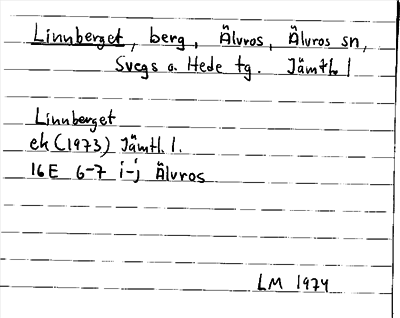 Linnberget, berg, Älvros, Älvros sn,
Svegs o. Hede tg. Jämtl. l
Linnberget
ek (1973) Jämtl. l.
16E 6-7 i-j Älvros
LM 1974